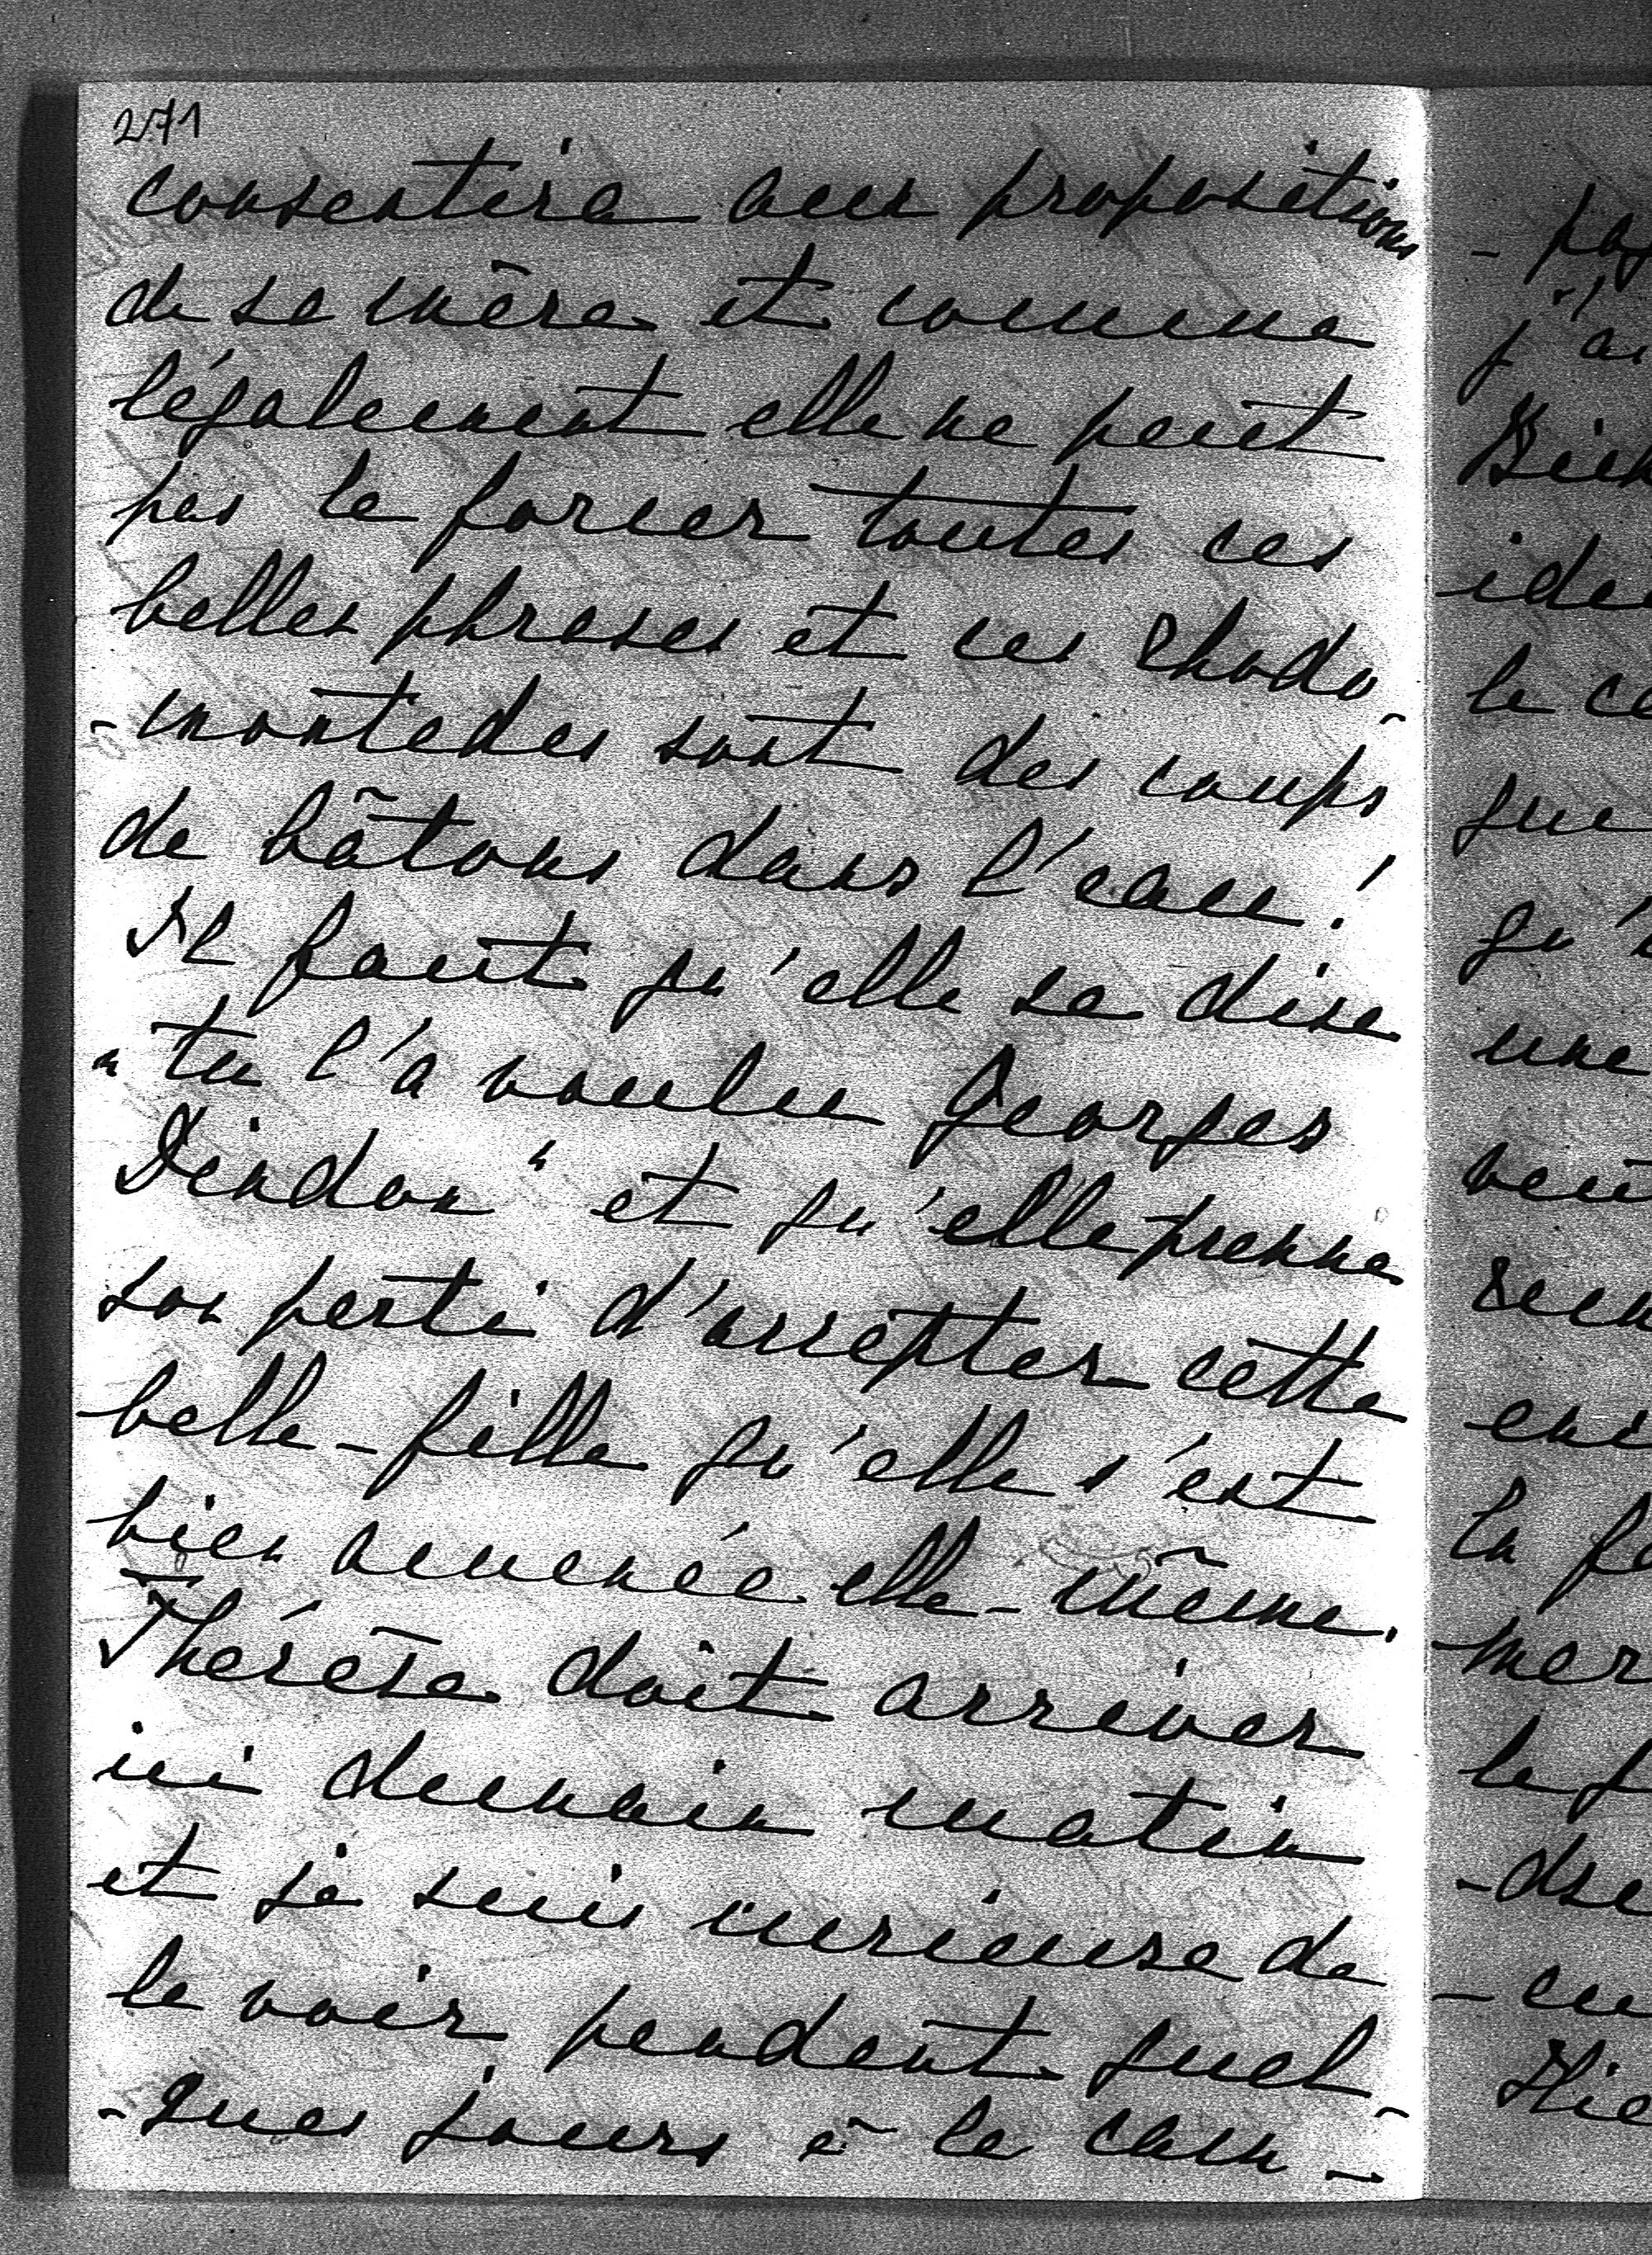 271
consentira aux propositions
de sa mère et comme
légalement elle ne peut
pas le forcer toutes ces
belles phrases et ces rhodo-
-montades sont des coups
de bâtons dans l'eau !
Il faut qu'elle se dise
"tu l'a voulu Georges
Dindon" et qu'elle prenne
son parti d'accepter cette
belle-fille qu'elle s'est
bien amenée elle-même.
Thérèse doit arriver
ici demain matin
et je suis curieuse de
la voir pendant quel-
-ques jours à la cam-
j'a
ide
le c
que
qu'
une
la f
-mer